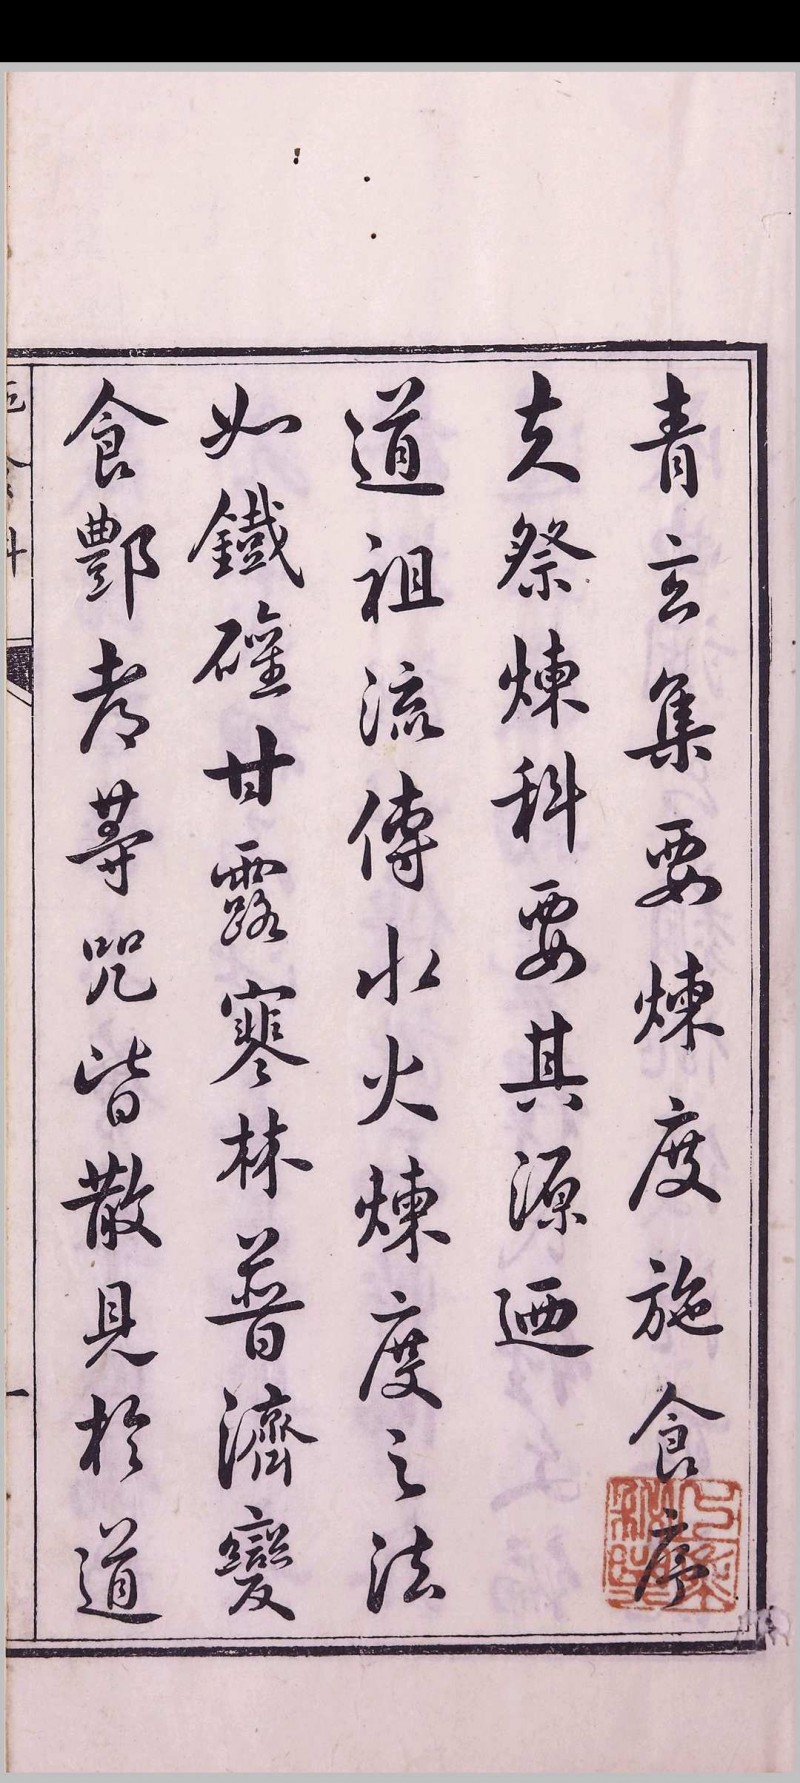 青玄集要煉度施食序
夫祭煉科要其源廼
道祖流傳水火煉度之法
如鐵罐甘露寒林普濟變
食酆都等咒皆散見於道
一